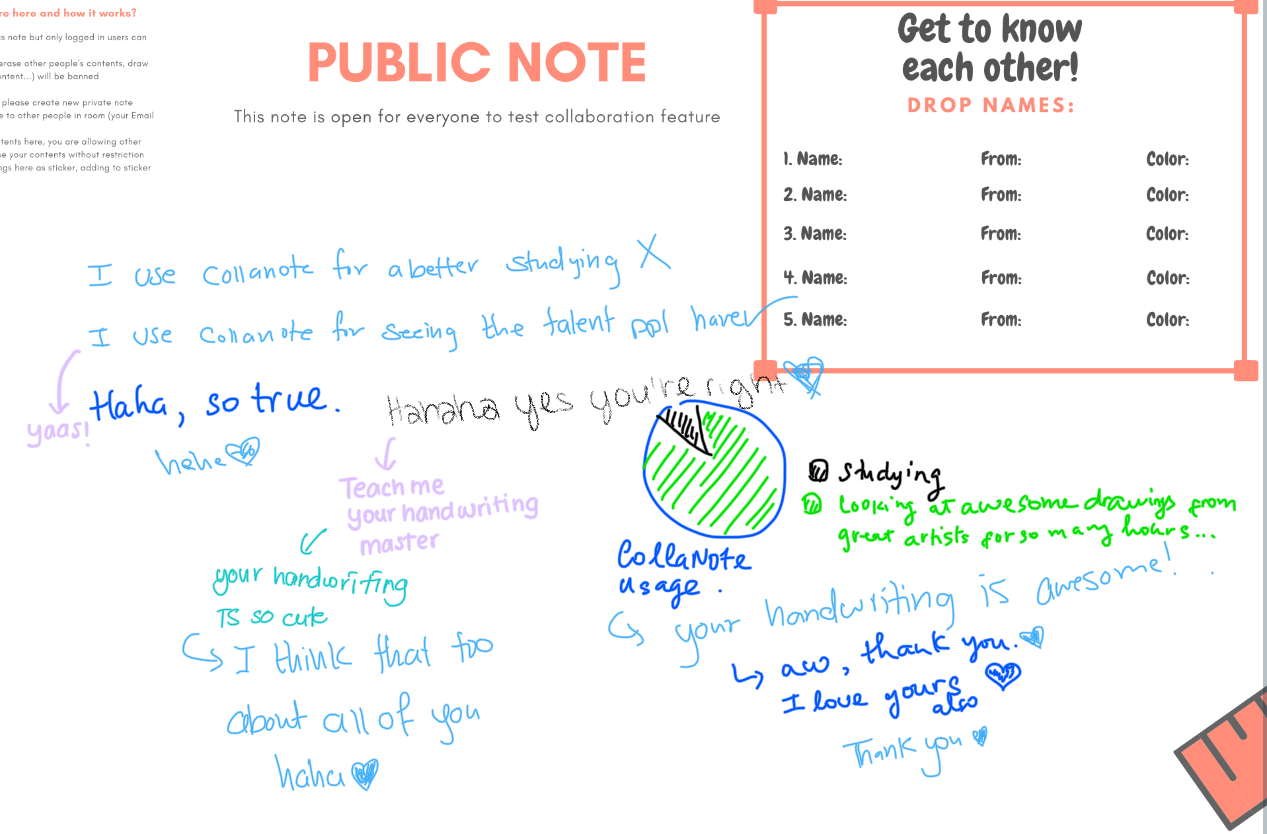 re here and how it works?
is note but only logged in users can
erase other people's contents, draw
ontent...) will be banned
please create new private note
e to other people in room (your Email
tents here, you are allowing other
se your contents without restriction
ngs here as sticker, adding to sticker
PUBLIC NOTE
This note is open for everyone to test collaboration feature
Get to know
each other!
DROP NAMES:
1. Name: From: Color:
2. Name: From: Color:
3. Name: From: Color:
4. Name: From: Color:
5. Name: From: Color:
I use Collanote for a better studying X
I use Collanote for seeing the talent ppl have
yaas!
Haha, so true.
hehe
Hahaha yes you're right
Teach me
your handwriting
master
your handwriting
IS so cute
I think that too
about all of you
haha
studying
Looking at awesome drawings from
great artists for so many hours...
CollaNote
usage.
your handwriting is awesome!
aw, thank you.
I love yours
also
Thank you